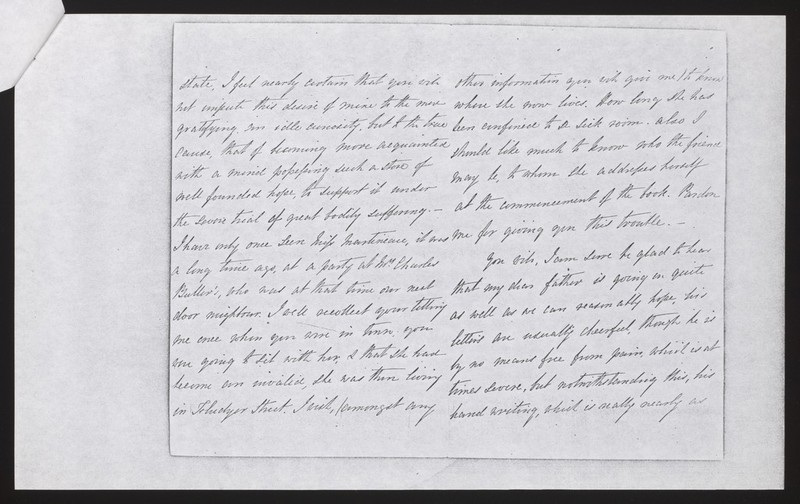 state. I feel nearly certain that you will
not impute this desire of mine to the mere
gratifying an idle curiosity, but to the true
cause, that of becoming more acquainted
with a mind possessing such a store of
well founded hope, to support it under
the severe trial of great bodily suffering. —
I have only once seen Miss Martineau, it was
a long time ago, at a party at Mrs Charles
Buller's, who was at that time our next
door neighbour. I well recollect your telling
me once when you were in town, you
were going to sit with her, & that she had
become an invalid, she was then living
in Fludyer Street. I wish, (amongst any
other information you will give me) to know
where she now lives. How long she has
been confined to a sick room. also I
should like much to know who the friend
may be, to whom she addresses herself
at the commencement of the book. Pardon
me for giving you this trouble. —
You will, I am sure be glad to hear
that my dear father is going on quite
as well as we can reasonably hope, his
letters are usually cheerful, though he is
by no means free from pain, which is at
times severe, but notwithstanding this, his
hand writing, which is really nearly as